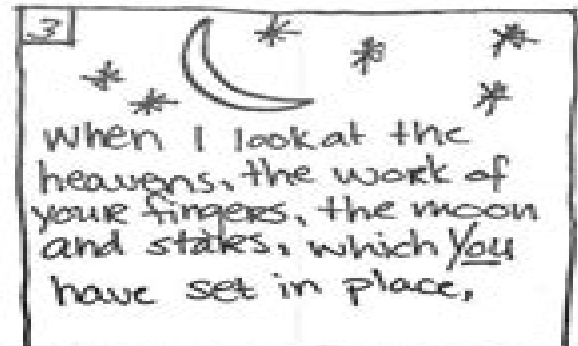 3
when I look at the
heavens, the work of
your fingers, the moon
and stars, which You
have set in place,